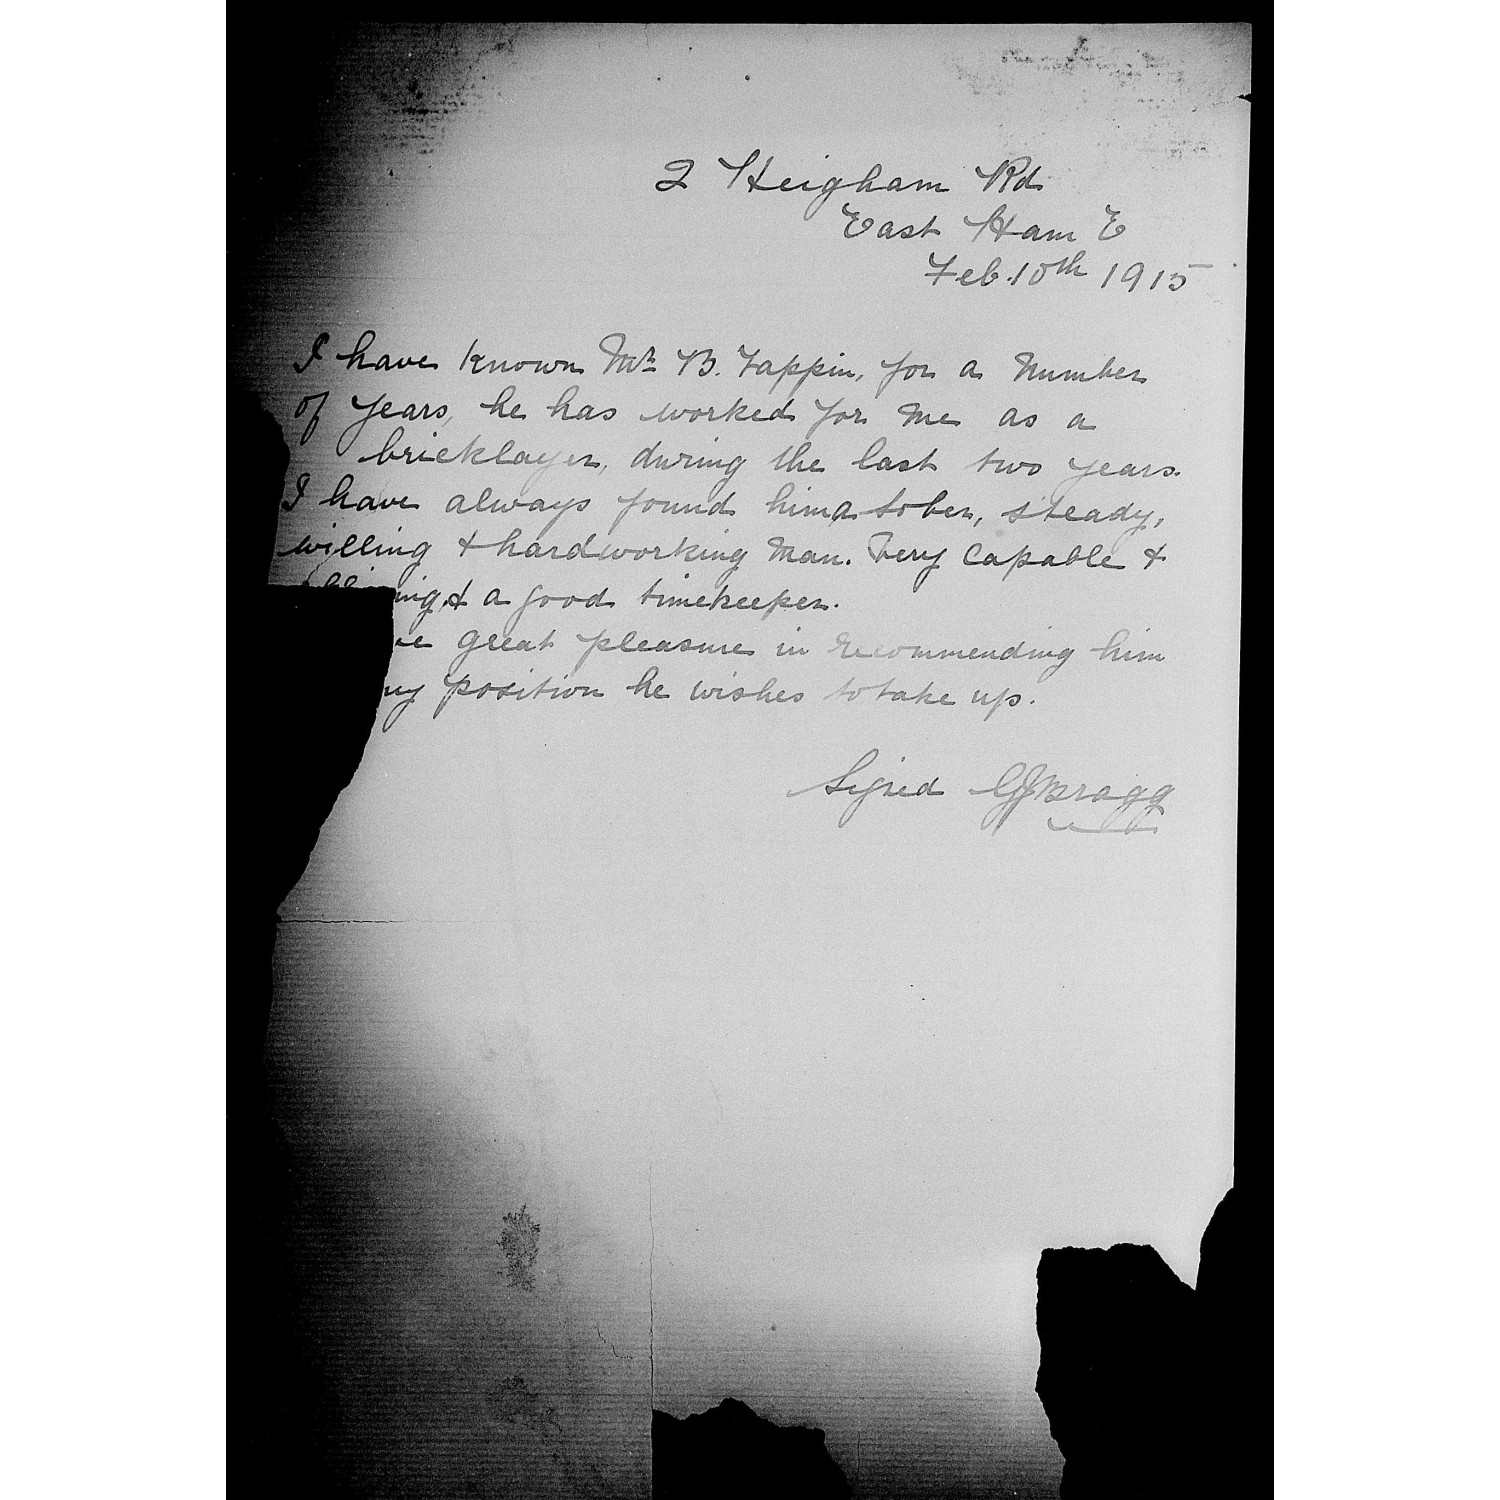 2 Heigham Rd
East Ham E
Feb. 10th 1915
I have known Mr B. Tappin, for a number
of years, he has worked for me as a
bricklayer, during the last two years.
I have always found him a sober, steady,
willing & hardworking man. Very capable &
& a good timekeeper.
great pleasure in recommending him
position he wishes to take up.
Signed G J Bragg